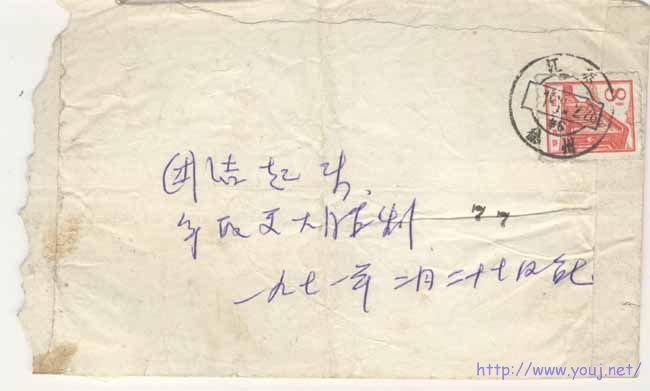 江苏
8
团结起来,
争取更大胜利 77
一九七一年二月二十七日
http://www.youj.net/